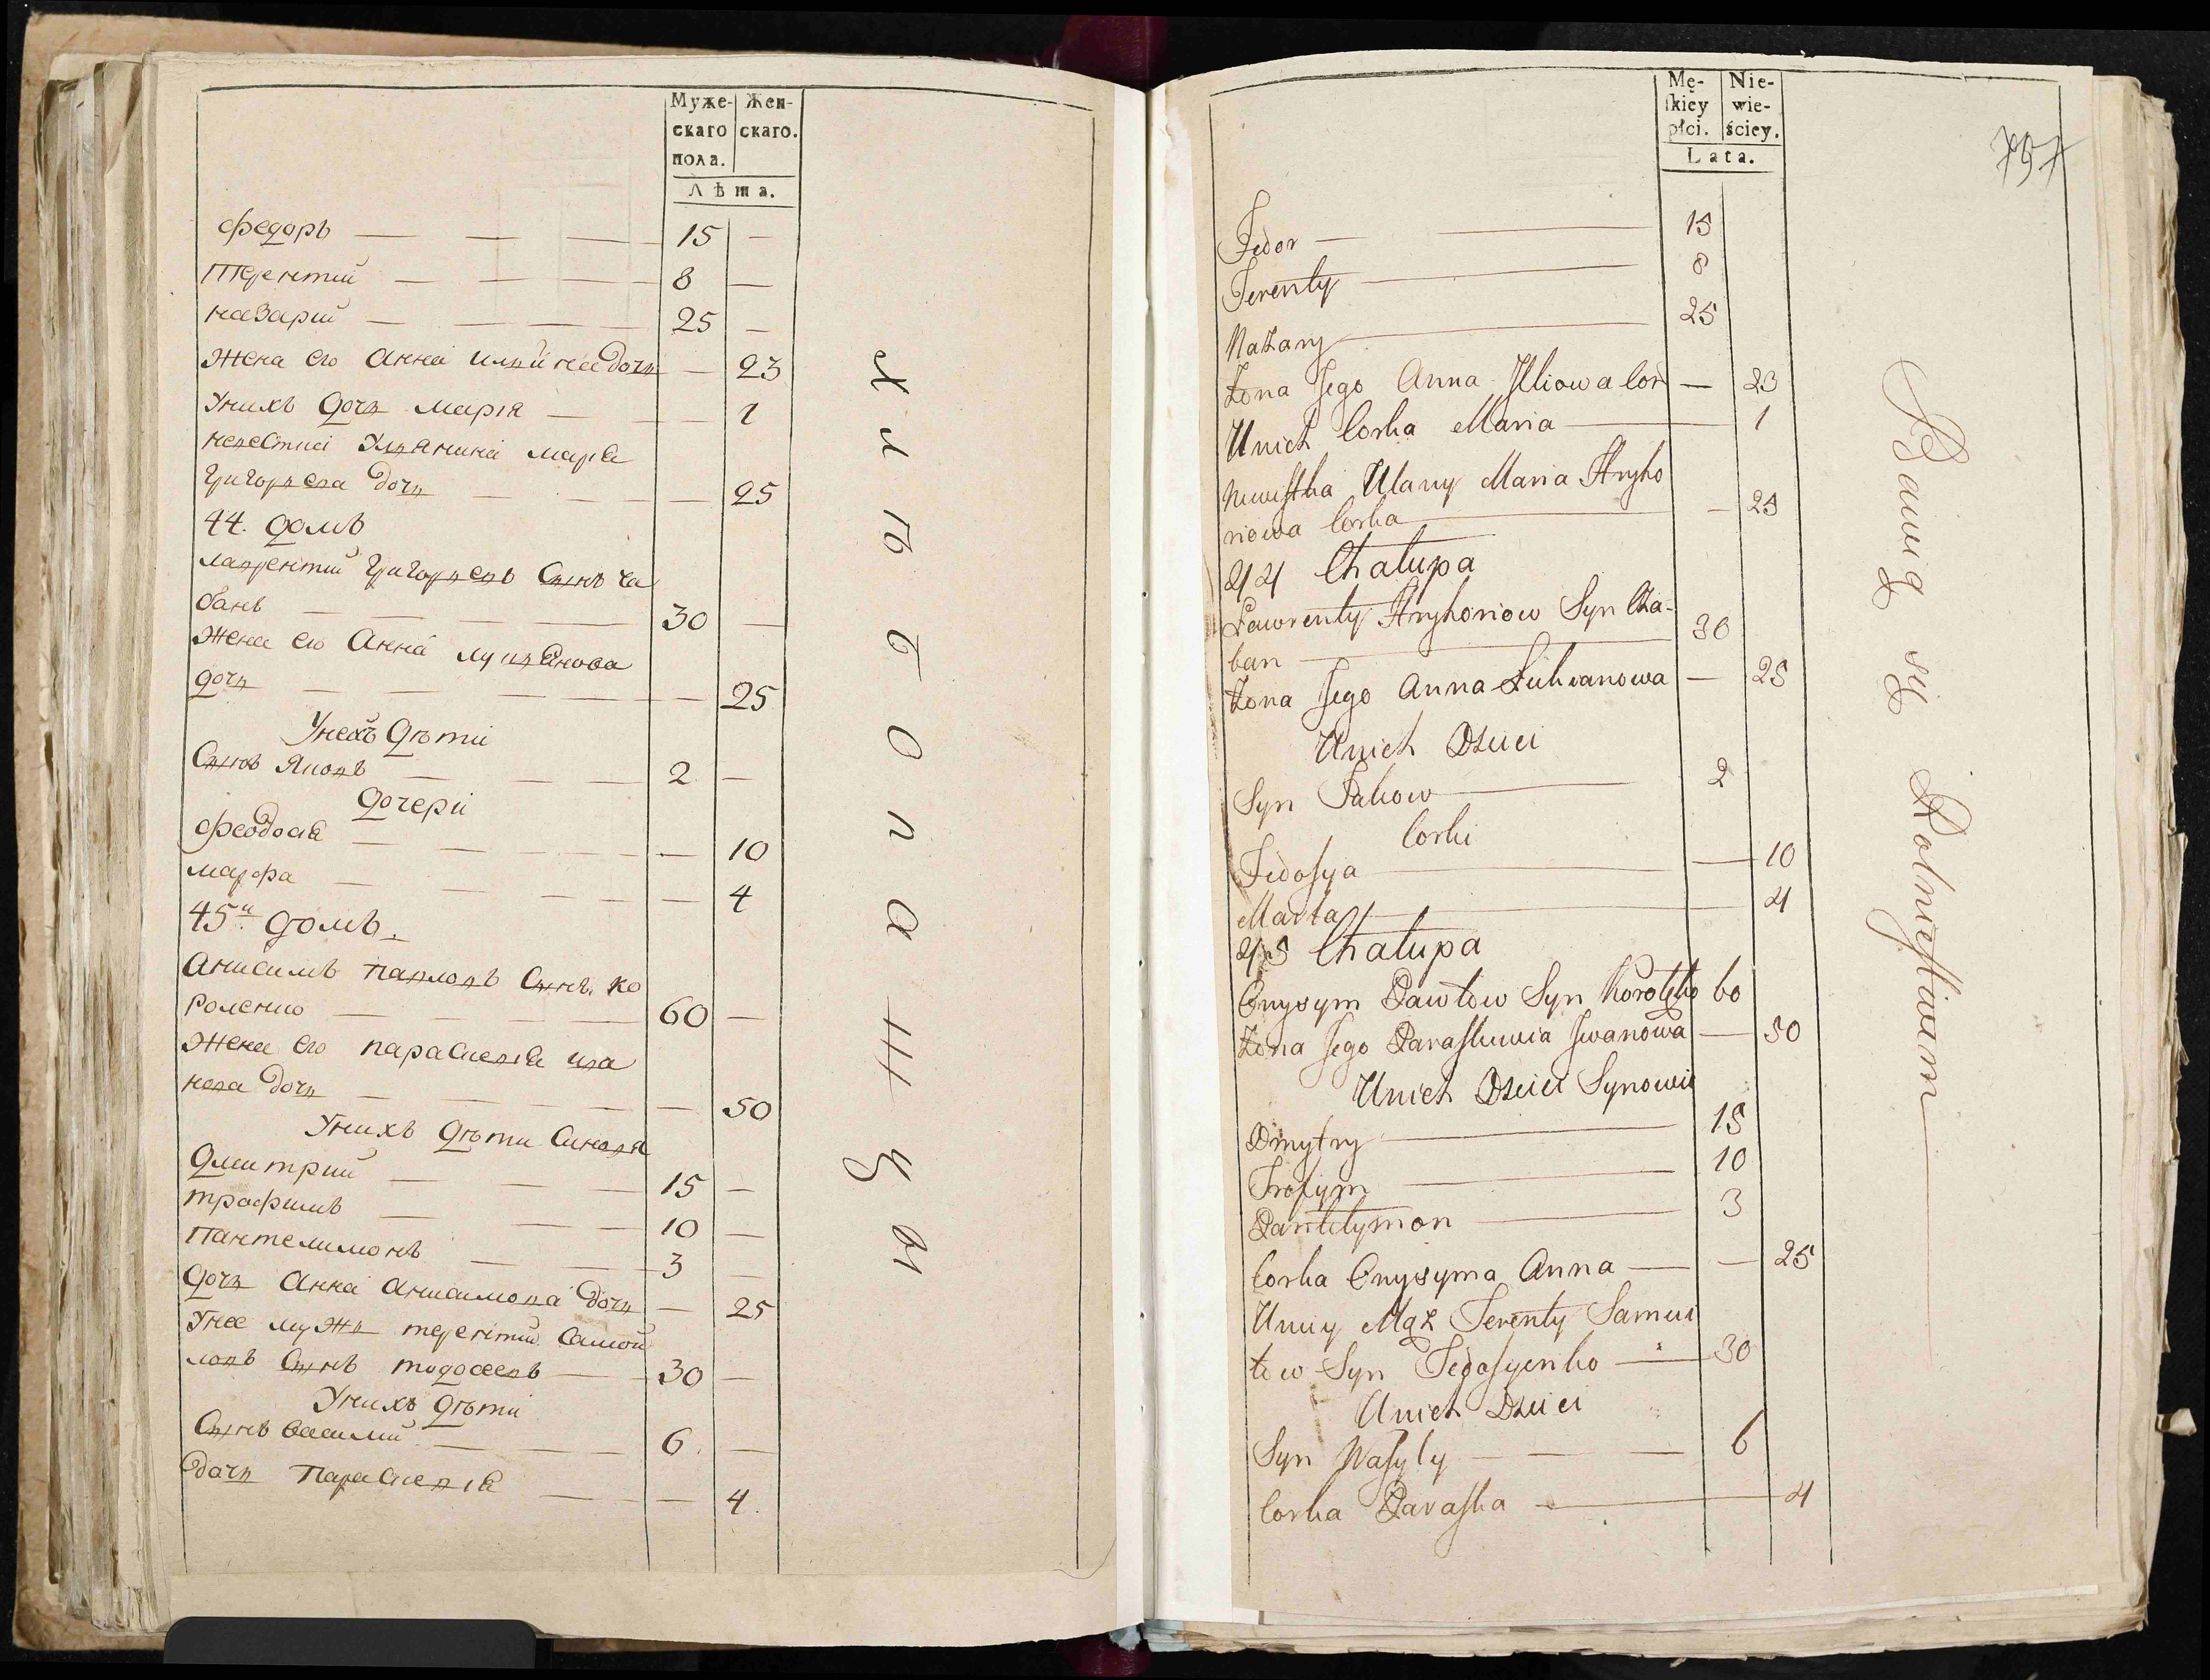 Муже-
скаго
пола.
Жен-
скаго.
Лѣта.
Федоръ — — — 15 —
Терентий — — — 8 —
назарий — — — 25 —
Жена его Анна дочь — 23
Унихъ дочь мария — — — 1
невестка Ульянина мария
Григорьева дочь — — — — 25
44. домъ
лаврентий Григорьевъ Сынъ ча
банъ — — — — 30 —
Жена его Анна лукьянова
дочь — — — — — 25
Унихъ дѣти
Сынъ Яковъ — — — 2 —
дочери
феодосия — — — — — 10
марфа — — — — — 4
45й домъ.
Анисимъ павловъ Сынъ ко
роленко — — — — 60 —
Жена его параскевия ива
нова дочь — — — — — 50
Унихъ дѣти Синовя
Дмитрий — — — 15 —
трофимъ — — — 10 —
Пантелимонъ — — 3 —
дочь Анна Анисимова дочь — 25
Унее мужъ терентий Самой
ловъ Сынъ тодосеевъ — — 30 —
Унихъ дѣти
Сынъ василий — — — 6. —
дочь параскевия — — — 4.
хлѣбопашци
Mę-
skiey
płci.
Nie-
wie-
ściey.
Lata.
797
Fedor — — 15
Terenty — 8
Nazary — 25
Żona Jego Anna Jlliowa Cor — 23
Unich Corka Maria — 1
Newistka Ulany Maria Hryho
riowa Corka — — 25
44 Chałupa
Ławrenty Hryhoriow Syn Cza-
ban — 30
Żona Jego Anna Łukianowa — 25
Unich Dzieci
Syn Jakow — 2
Corki
Fedosya — — 10
Marta — 4
45 Chałupa
Onysym Pawłow Syn 60
Żona Jego Paraskewia Jwanowa — 50
Unich Dzieci Synowie
Dmytry — 15
Trofym — 10
Pantelymon — 3
Corka Onysyma Anna — — 25
Uniey Mąż Terenty Samui
łow Syn Fedosyenko — 30
Unich Dzieci
Syn Wasyly — — — 6
Corka Paraska — 4
Bawią się Rolnictwem —